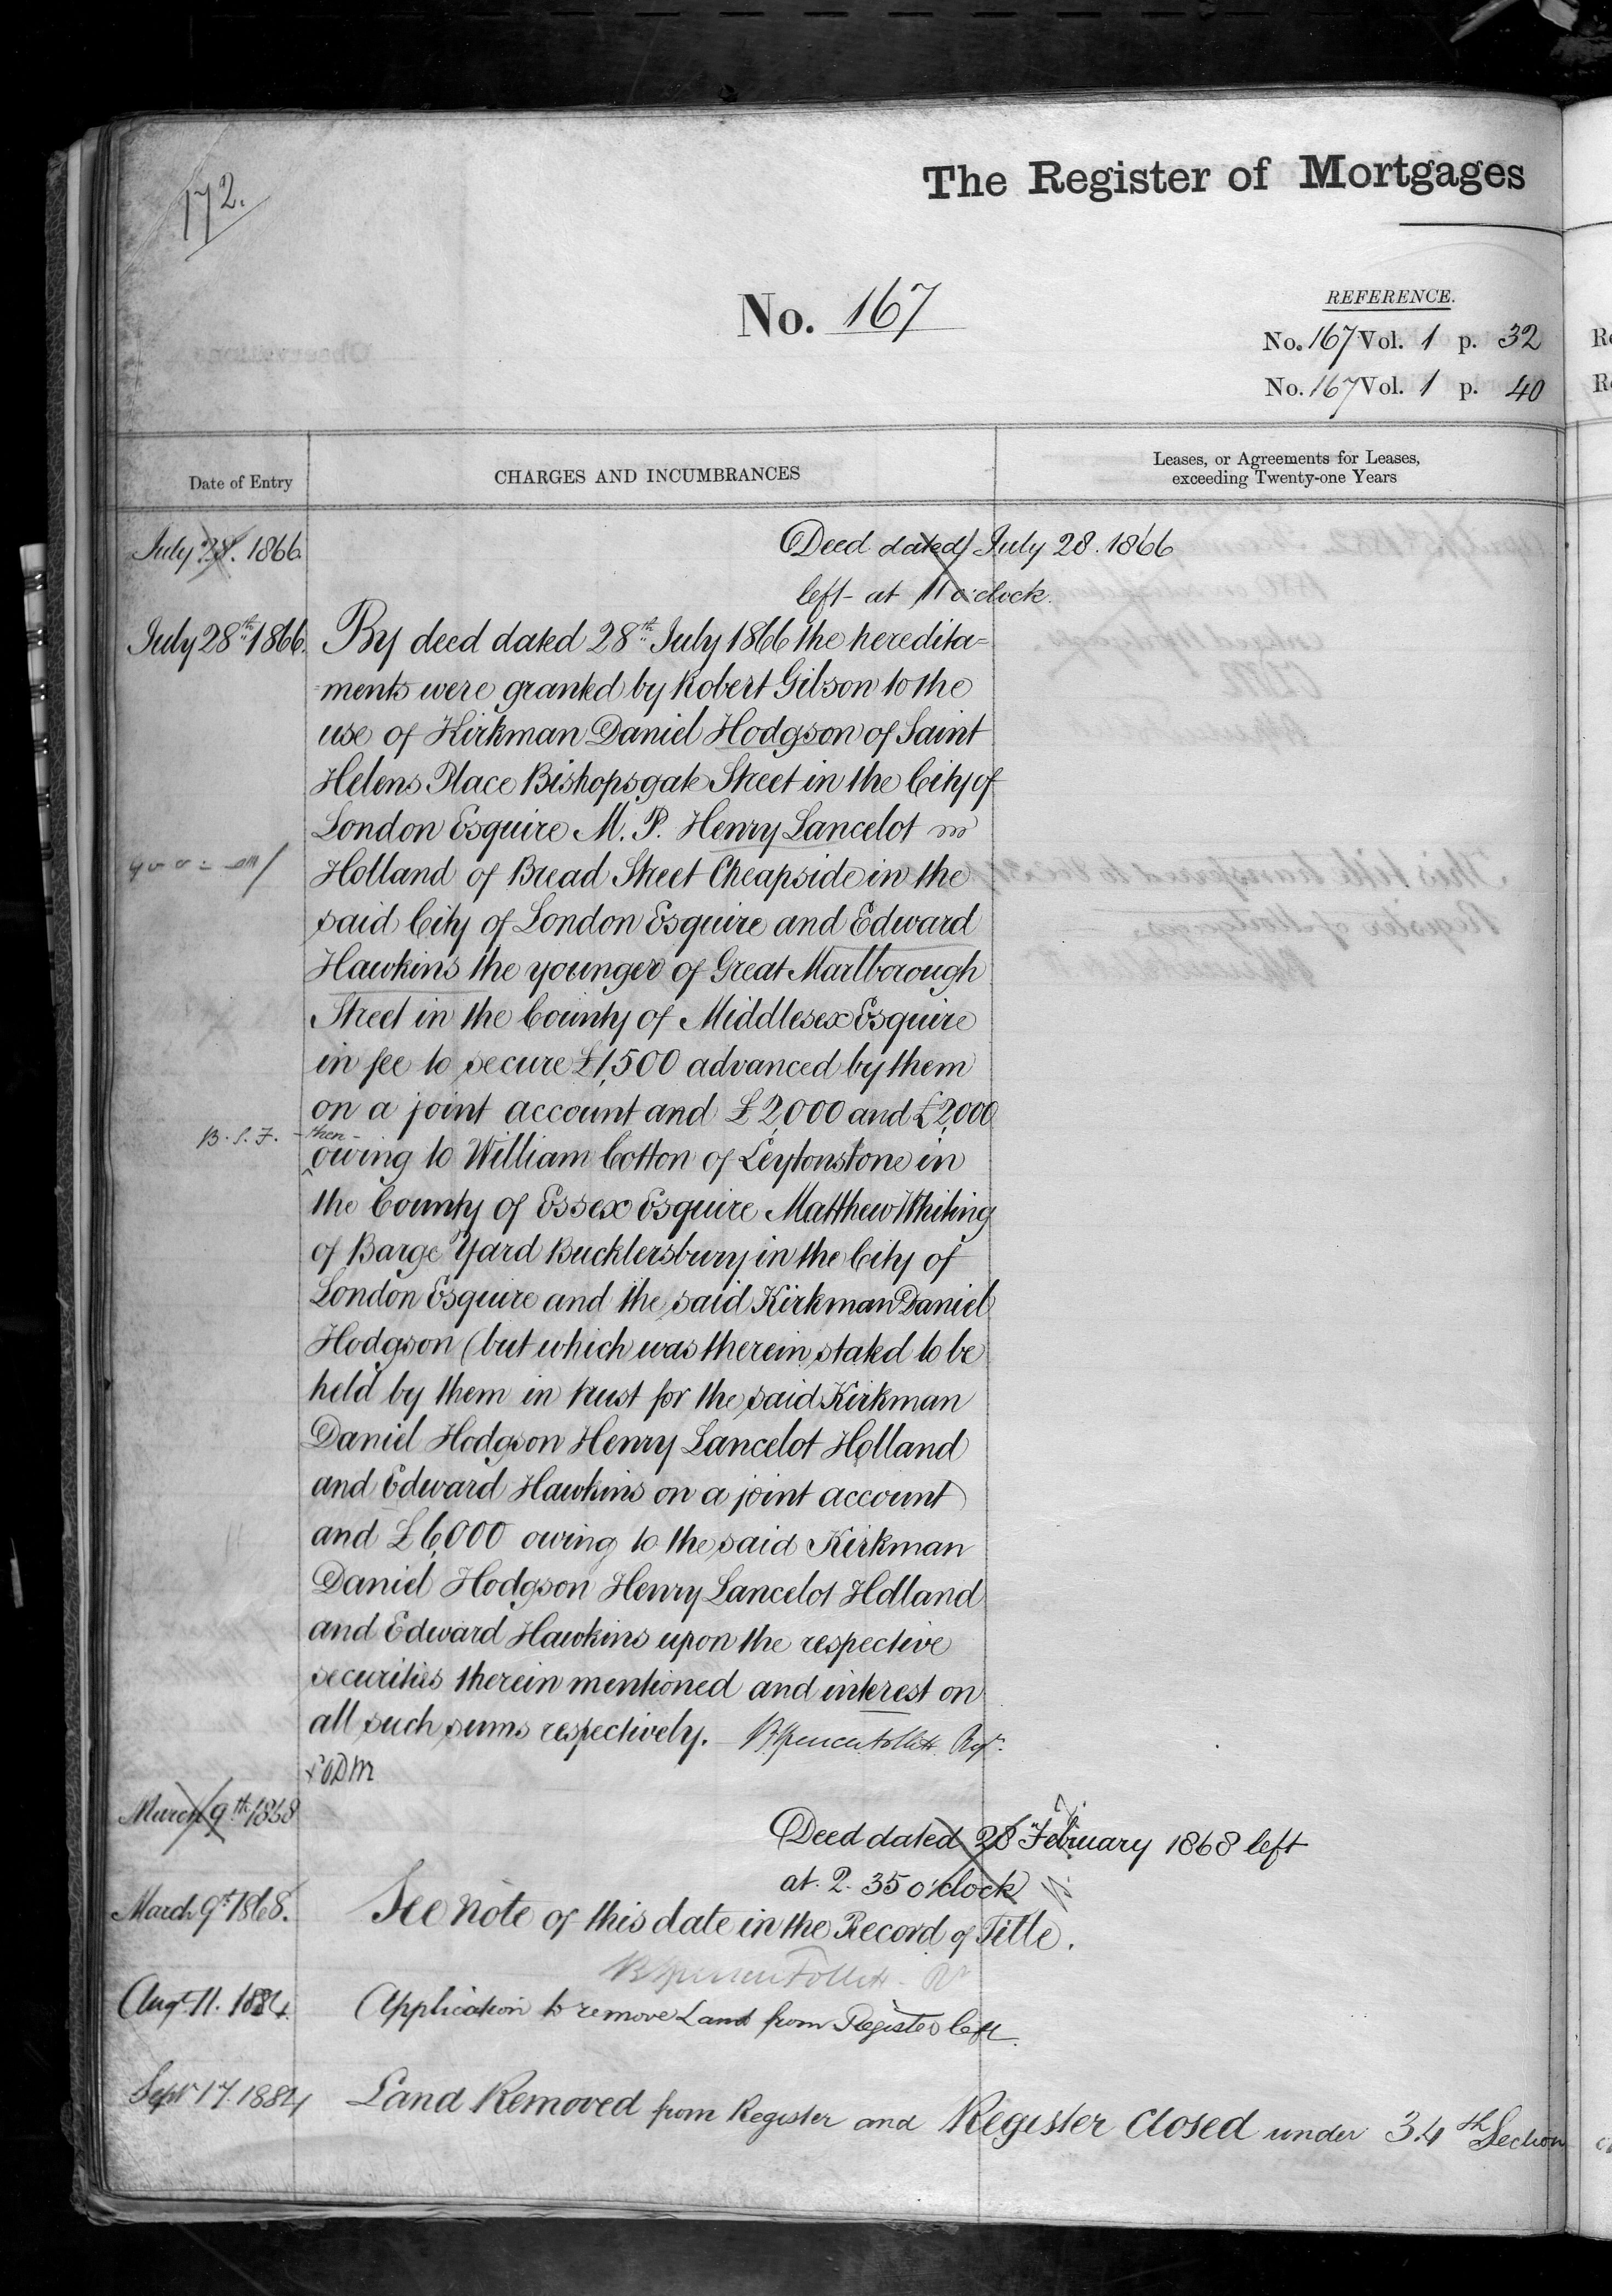 172.
The Register of Mortgages
No. 167
REFERENCE.
No. 167 Vol. 1 p. 32
No. 167 Vol. 1 p. 40
Date of Entry
CHARGES AND INCUMBRANCES
Leases, or Agreements for Leases,
exceeding Twenty-one Years
July 28. 1866
Deed dated July 28. 1866
left at 11 o'clock.
July 28th 1866.
By deed dated 28th July 1866 the heredita=
ments were granted by Robert Gibson to the
use of Kirkman Daniel Hodgson of Saint
Helens Place Bishopsgate Street in the City of
London Esquire M. P. Henry Lancelot
Holland of Bread Street Cheapside in the
said City of London Esquire and Edward
Hawkins the younger of Great Marlborough
Street in the County of Middlesex Esquire
in fee to secure £1,500 advanced by them
on a joint account and £2,000 and £2,000
B. S. F. -then-
owing to William Cotton of Leytonstone in
the County of Essex Esquire Matthew Whiting
of Barge Yard Bucklersbury in the City of
London Esquire and the said Kirkman Daniel
Hodgson (but which was therein stated to be
held by them in trust for the said Kirkman
Daniel Hodgson Henry Lancelot Holland
and Edward Hawkins on a joint account)
and £6,000 owing to the said Kirkman
Daniel Hodgson Henry Lancelot Holland
and Edward Hawkins upon the respective
securities therein mentioned and interest on
all such sums respectively. B Spencer Follett Regr.
March 9th 1868
Deed dated 28 February 1868 left
at 2. 35 o'clock
March 9th 1868.
See note of this date in the Record of Title.
B Spencer Follett Rr
Augt. 11. 1884.
Application to remove Land from Register left.
Septr 17. 1884
Land Removed from Register and Register Closed under 34th Section